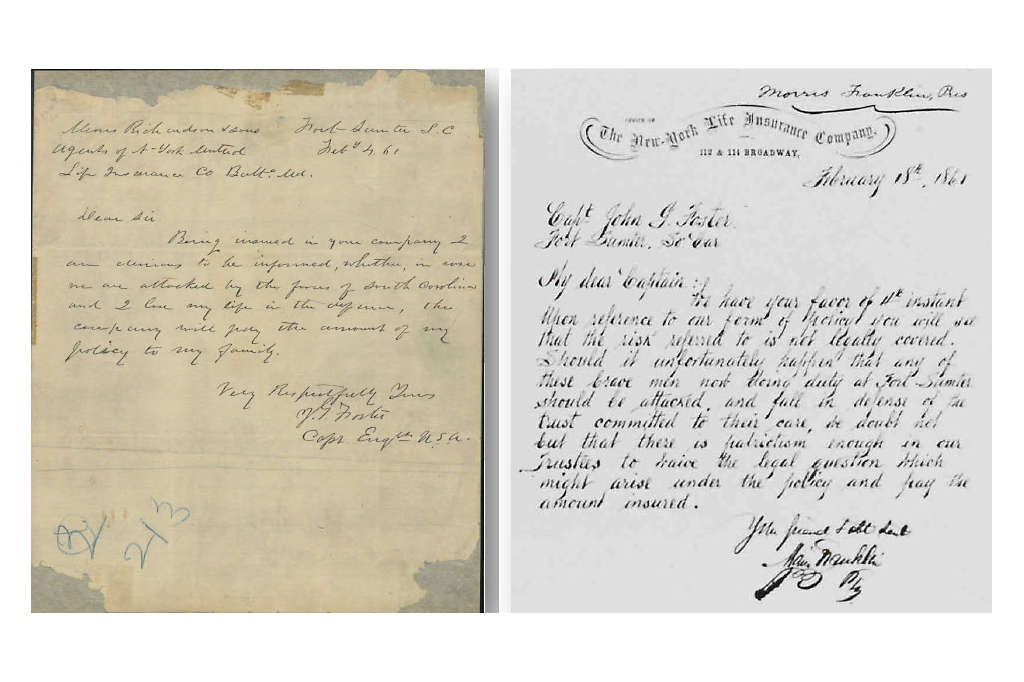 Messrs Richardson & sons
Agents of N-York Mutual
Life Insurance Co Balto. Md.
Fort Sumter S. C
Feby 4. 61
Dear Sir
Being insured in your company I
am desirous to be informed, whether, in case
we are attacked by the forces of South Carolina
and I lose my life in the defence, the
company will pay the amount of my
policy to my family.
Very Respectfully Yours
J. G. Foster
Capt Engrs U.S.A.
213
Morris Franklin, Pres
OFFICE OF
The New-York Life Insurance Company,
112 & 114 BROADWAY,
February 18th, 1861
Capt. John G. Foster
Fort Sumter, So Car
My dear Captain:
We have your favor of 4th instant
Upon reference to our form of policy you will see
that the risk referred to is not legally covered.
Should it unfortunately happen that any of
these brave men now doing duty at Fort Sumter
should be attacked, and fall in defense of the
trust committed to their care, we doubt not
but that there is patriotism enough in our
Trustees to waive the legal question which
might arise under the policy and pay the
amount insured.
Your friend & obt Servt
Morris Franklin